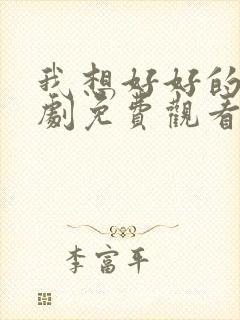 我想好好的
劇免費觀看
李富平